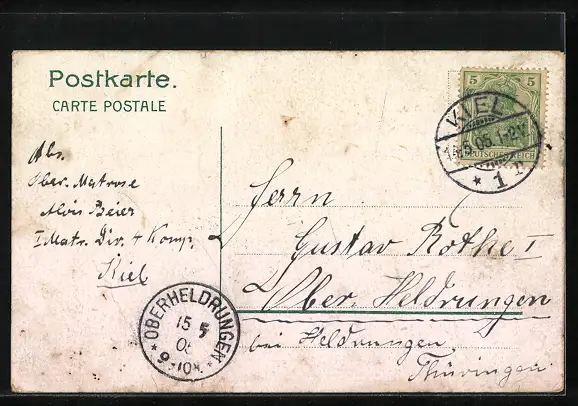 Postkarte.
CARTE POSTALE
5 5
DEUTSCHES REICH
KIEL
5.05.1-2N
* 1 P
Abs.
Ober. Matrose
Alois Beier
I Matr. Div. 4 Komp.
Kiel
Herrn
Gustav Rothe I
Ober. Heldrungen
bei Heldrungen
Thüringen
OBERHELDRUNGEN
15 5
05
9-10V.